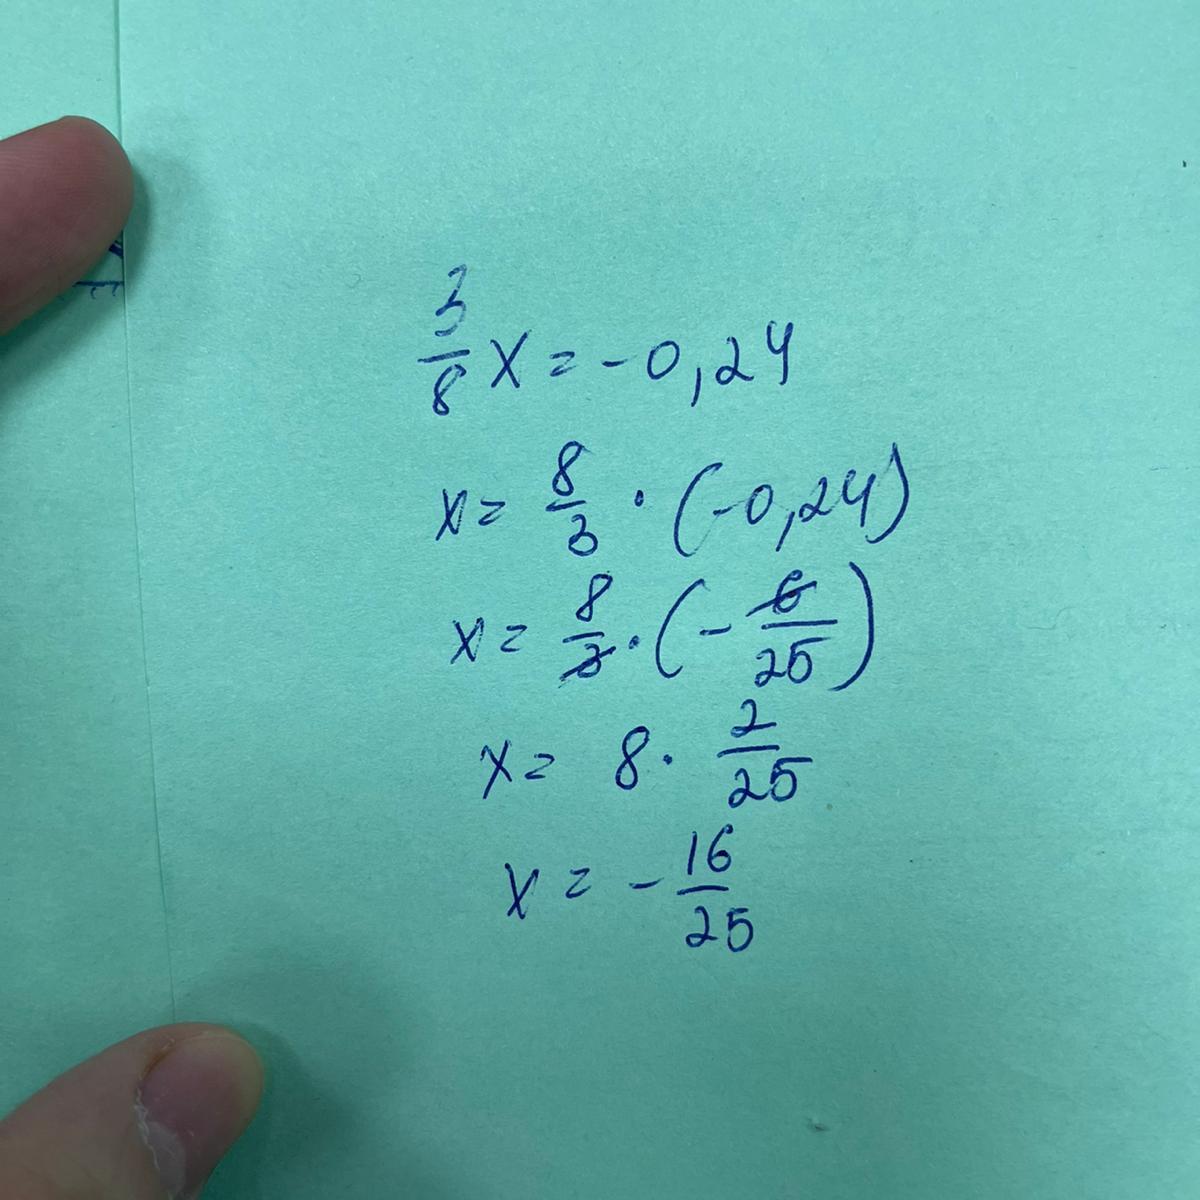 3/8 x = -0,24
x = 8/3 · (-0,24)
x = 8/3 · (- 6/25)
x = 8 · 2/25
x = - 16/25